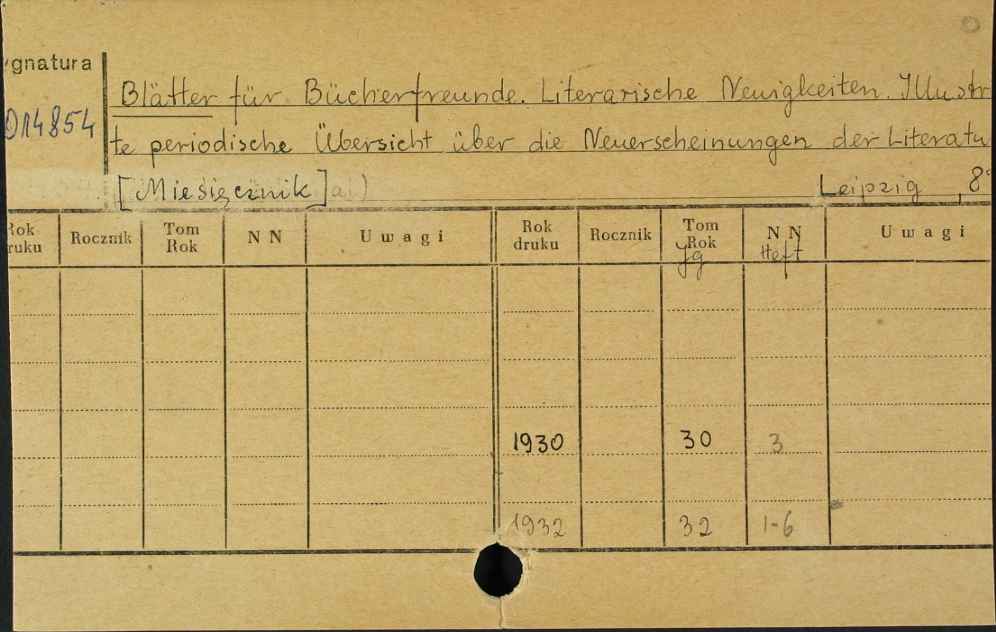 ygnatura
Blätter für Bücherfreunde. Literarische Neuigkeiten. Illustr
te periodische Übersicht über die Neuerscheinungen der Literatu
[Miesięcznik]
Leipzig, 8°
Rok druku Rocznik Tom Rok N N Uwagi Rok druku Rocznik Tom Rok N N Uwagi
Jg Heft
1930 30 3
1932 32 1-6